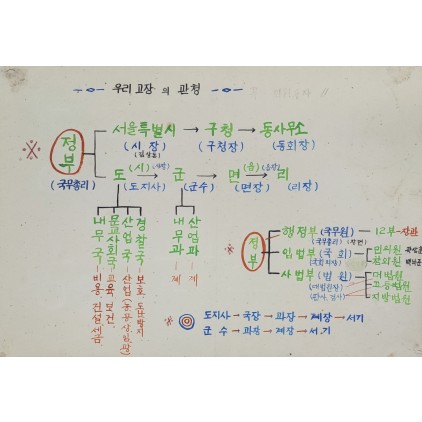 우리 고장의 관청
정부 (국무총리)
서울특별시 → 구청 → 동사무소
(시장) (구청장) (동회장)
도 (시) → 군 → 면 (읍) → 리
(도지사) (시장) (군수) (면장) (읍장) (리장)
내무국 문교사회국 산업국 경찰국
내무과 산업과
정부
행정부 (국무원) 12부-장관
(국무총리)
입법부 (국회) 민의원
참의원
사법부 (법원) 대법원
(대법원장) 고등법원
(판사, 검사) 지방법원
도지사 → 국장 → 과장 → 계장 → 서기
군수 → 과장 → 계장 → 서기